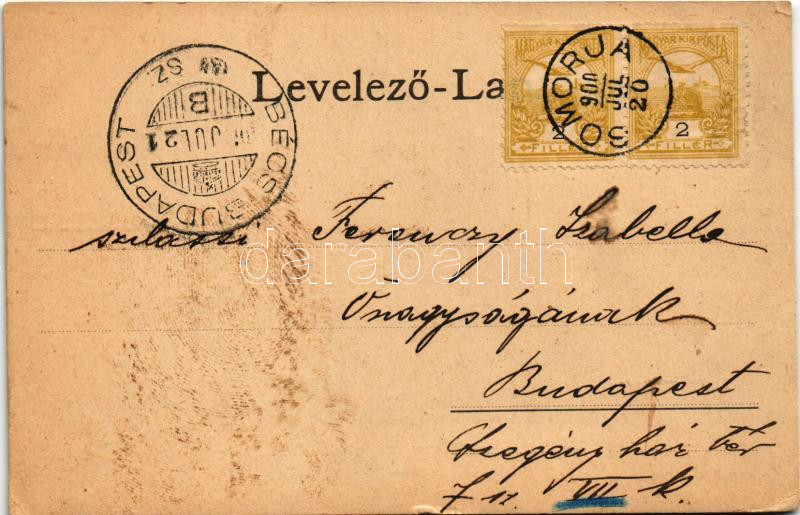 MAGYAR KIR. POSTA MAGYAR KIR. POSTA
SOMORJA
900
JUL
20
2 2
FILLÉR FILLÉR
BUDAPEST BÉCS BUDAPEST
SZ.
B
JUL 21
Levelező-La
szilassi Ferenczy Izabella
darabanth
Önagyságának
Budapest
Szegényház tér
7 sz. VII k.